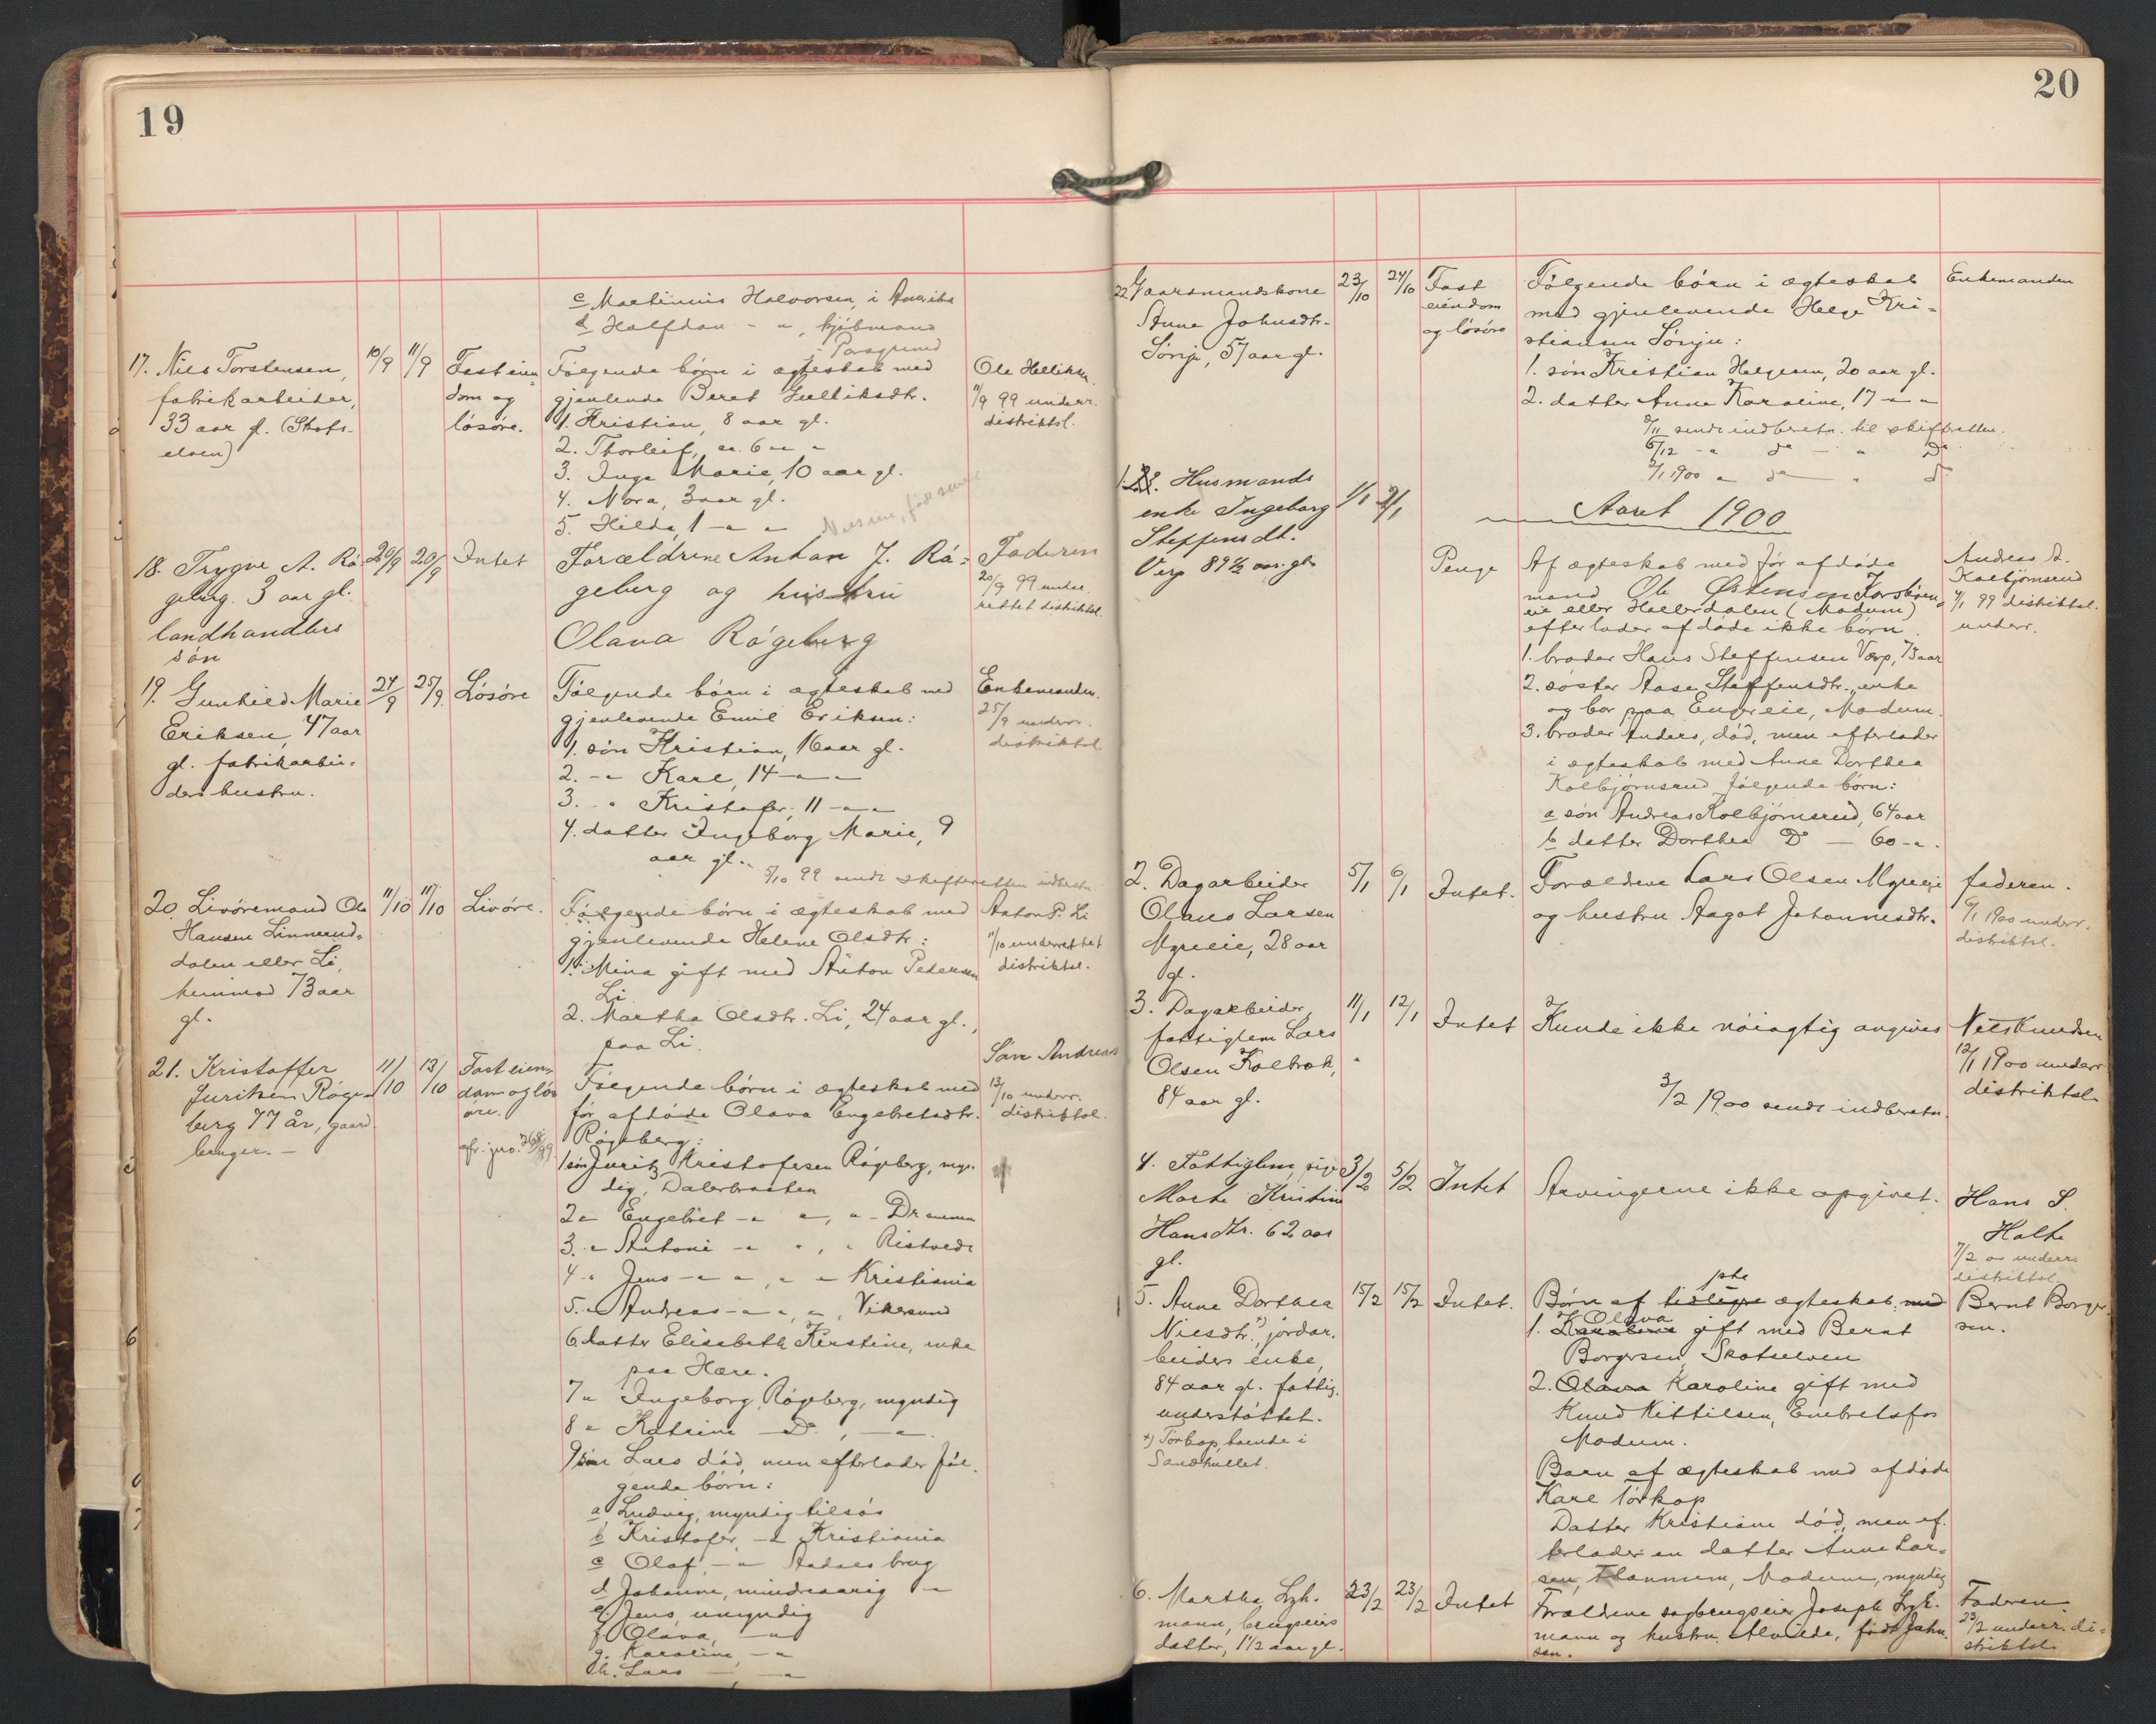 19
c Martinius Halvorsen, i Amerika
d Halfdan - " , kjöbmand
i Porsgrund
17. Nils Torstensen,
fabrikarbeider,
33 aar gl. (Skots-
elven)
10/9
11/9
Fast eien
dom og
lösöre.
Fölgende börn i ægteskab med
gjenlevende Beret Gulliksdtr.
1. Kristian, 8 aar gl.
2. Thorleif, ca. 6 " "
3. Inga Marie, 10 aar gl.
4. Nora, 3 aar gl.
5. Hilda, 1 - " "
Ole Helliksen.
11/9 99 underr.
distriktsl.
18. Trygve A. Rå-
geberg. 3 aar gl.
landhandlers
sön
20/9
20/9
Intet
Forældrene Anton J. Rå-
geberg og hustru
Olava Rågeberg
Faderen
20/9 99 under-
rettet distriktsl.
19. Gunhild Marie
Eriksen, 47 aar
gl. fabrikarbei-
ders hustru.
24/9
25/9.
Lösöre
Fölgende börn i ægteskab med
gjenlevende Emil Eriksen:
1. sön Kristian, 16 aar gl.
2. - " Karl, 14 - " -
3. - " Kristofer, 11 - " "
4. datter Ingeborg Marie, 9
aar gl.
5/10 99 sendt skifteretten indberetn.
Enkemanden.
25/9 underr.
distriktsl.
20. Livöremand Ole
Hansen Linnerud-
dalen eller Li,
henimod 73 aar
gl.
11/10
11/10
Livöre.
Fölgende börn i ægteskab med
gjenlevende Helene Olsdtr:
1. Mina gift med Anton Pedersen
Li
2. Martha Olsdtr. Li, 24 aar gl.,
paa Li.
Anton P. Li
11/10 underrettet
distriktsl.
21. Kristoffer
Juritzen Råge-
berg 77 år, gaard
bruger. -
11/10
13/10
Fast eien-
dom og lös
öre.
afr. pro. 268/99
Fölgende börn i ægteskab med
för afdöde Olava Engebretsdtr.
Rågeberg:
1. sön Juritz Kristofersen Rågeberg, myn-
dig, Dalerbraaten
2 " Engebret - " ", " - Drammen
3. " Antoni - " ", " Ristvedt
4 - " Jens - " ", " - Kristiania
5. " Andreas - " ", " , Vikersund
6. datter Elisabeth Kirstine, enke
paa Hære.
7 " Ingeborg Rågeberg, myndig
8 " Katrine - Do , - "
9 sön Lars död, men efterlader föl-
gende börn:
a Ludvig, myndig tilsös
b Kristofer, - " Kristiania
c Olaf, - " Aadals brug
d Johanne, mindreaarig - "
e. Jens, umyndig
f. Olava, - "
g. Karoline, - "
h. Lars - , - "
Sön Andreas
13/10 underr.
distriktsl.
20
22 Gaardmandskone
Anne Johnsdtr.
Sönju, 57 aar gl.
23/10
24/10
Fast
eiendom
og lösöre
Fölgende börn i ægteskab
med gjenlevende Helge Kri-
stiansen Sönju:
1. sön Kristian Helgesen, 20 aar gl.
2. datter Anne Karoline, 17 - " "
3/11 sendt indberetn. til skifteretten.
5/12 - " do - " do
2/1 1900 " do " do
Enkemanden
Aaret 1900
1. 23. Husmands
enke Ingeborg
Steffensdt.
Verp 89 1/2 aar gl.
1/1
2/1
Penge
Af ægteskab med för afdöde
mand Ole Østensen Forsbjörn
eie eller Hallerdalen (Modum)
efterlader afdöde ikke börn.
1. broder Hans Steffensen Verp, 73 aar
2. söster Aase Steffensdtr., enke
og bor paa Engereie, Modum.
3. broder Anders, död, men efterlader
i ægteskab med Anne Dorthea
Kolbjörnsrud fölgende börn:
a sön Andreas Kolbjörnsrud, 64 aar
b datter Dorthea Do - 60 - "
Andreas A.
Kolbjörnsrud
4/1 99 distriktsl.
underr.
2. Dagarbeider
Olaus Larsen
Myreeie, 28 aar
gl.
5/1
6/1
Intet.
Forældrene Lars Olsen Myreeie
og hustru Aagot Johannesdtr.
faderen.
6/1 1900 underr.
distriktsl.
3. Dagarbeider,
fattiglem Lars
Olsen Kolbrok,
84 aar gl.
11/1
12/1
Intet
Kunde ikke nöiagtig angives
3/2 1900 sendt indberetn.
Nils Knudsen
12/1 1900 underr
distriktsl.
4. Fattiglem, pige
Marte Kristine
Hansdtr. 62 aar
gl.
3/2
5/2
Intet
Arvingerne ikke opgivet.
Hans S.
Holte
7/2 00 underr.
distriktsl.
5. Anne Dorthea
Nilsdtr. x), jordar-
beiders enke,
84 aar gl. fattig-
understöttet.
x) Törkop, boende i
Sandhullet.
15/2
15/2
Intet.
Börn af tidligre 1ste ægteskab. med
1. Karoline Olava gift med Bernt
Borgersen, Skotselven
2. Olava Karoline gift med
Knud Kittilsen, Embretsfos
Modum.
Barn af ægteskab med afdöde
Karl Törkop
Datter Kristiane död, men ef-
terlader en datter Anne Lar-
sen, Flannum, Modum, myndig
Bernt Borger-
sen.
6. Martha Lyk-
mann, brugseiers
datter, 1 1/2 aar gl.
23/2
23/2
Intet
Forældrene sagbrugseier Joseph Lyk-
mann og hustru Alvilde, född John-
sen.
Faderen.
23/2 underr. di-
striktsl.